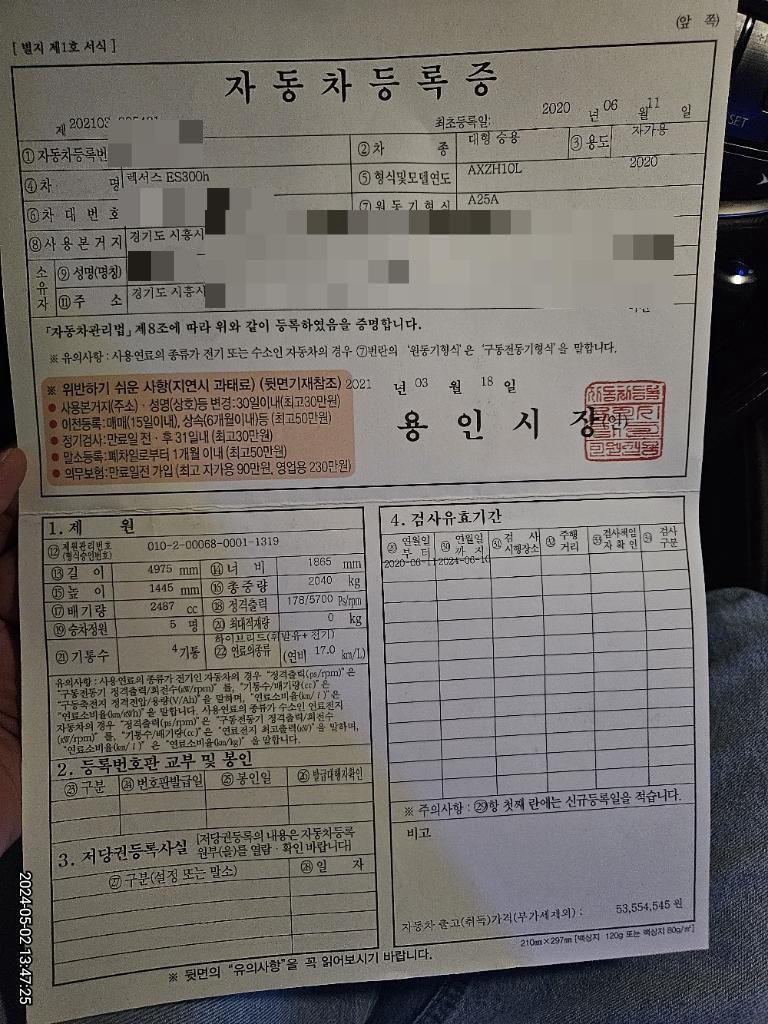 (앞 쪽)
[ 별지 제1호 서식 ]
자 동 차 등 록 증
제 202103 최초등록일: 2020 년 06 월 11 일
① 자동차등록번 ② 차 종 대형 승용 ③ 용도 자가용
④ 차 명 렉서스 ES300h ⑤ 형식및모델연도 AXZH10L 2020
⑥ 차 대 번 호 ⑦ 원 동 기 형 식 A25A
⑧ 사 용 본 거 지 경기도 시흥시
소유자 ⑨ 성명(명칭)
⑪ 주 소 경기도 시흥시
「자동차관리법」 제8조에 따라 위와 같이 등록하였음을 증명합니다.
※ 유의사항 : 사용연료의 종류가 전기 또는 수소인 자동차의 경우 ⑦번란의 '원동기형식'은 '구동전동기형식'을 말합니다.
※ 위반하기 쉬운 사항(지연시 과태료) (뒷면기재참조) 2021 년 03 월 18 일
● 사용본거지(주소) · 성명(상호)등 변경:30일이내(최고30만원)
● 이전등록:매매(15일이내), 상속(6개월이내)등 (최고50만원)
● 정기검사: 만료일 전 · 후 31일내 (최고30만원)
● 말소등록 : 폐차일로부터 1개월 이내 (최고50만원)
● 의무보험:만료일전 가입 (최고 자가용 90만원, 영업용 230만원)
용 인 시 장 (인)
1. 제 원
⑫ 제원관리번호 (형식승인번호) 010-2-00068-0001-1319
⑬ 길 이 4975 mm ⑭ 너 비 1865 mm
⑮ 높 이 1445 mm ⑯ 총 중 량 2040 kg
⑰ 배 기 량 2487 cc ⑱ 정격출력 178/5700 Ps/rpm
⑲ 승차정원 5 명 ⑳ 최대적재량 0 kg
㉑ 기 통 수 4 기통 ㉒ 연료의종류 하이브리드(휘발유+전기) (연비 17.0 km/L)
유의사항 : 사용연료의 종류가 전기인 자동차의 경우 "정격출력(ps/rpm)"은
"구동전동기 정격출력/회전수(kW/rpm)" 를, "기통수/배기량(cc)"은
"구동축전지 정격전압/용량(V/Ah)"을 말하며, "연료소비율(km/ℓ)"은
"연료소비율(km/kWh)" 을 말합니다. 사용연료의 종류가 수소인 연료전지
자동차의 경우 "정격출력(ps/rpm)"은 "구동전동기 정격출력/회전수
(kW/rpm)" 를, "기통수/배기량(cc)"은 "연료전지 최고출력(kW)" 을 말하며,
"연료소비율(km/ℓ)" 은 "연료소비율(km/kg)" 을 말합니다.
2. 등록번호판 교부 및 봉인
㉓ 구분 ㉔ 번호판발급일 ㉕ 봉인일 ㉖ 발급대행자확인
3. 저당권등록사실 [저당권등록의 내용은 자동차등록
원부(을)를 열람 · 확인 바랍니다]
㉗ 구분(설정 또는 말소) ㉘ 일 자
4. 검사유효기간
㉙ 연월일 부 터 ㉚ 연월일 까 지 ㉛ 검 사 시행장소 ㉜ 주행 거리 ㉝ 검사책임 자 확 인 ㉞ 검사 구분
2020-06-11 2024-06-10
※ 주의사항 : ㉙항 첫째 란에는 신규등록일을 적습니다.
비고
자동차 출고(취득)가격(부가세제외) : 53,554,545 원
210㎜×297㎜ [백상지 120g 또는 백상지 80g/㎡]
※ 뒷면의 "유의사항"을 꼭 읽어보시기 바랍니다.
2024-05-02 13:47:25
SET